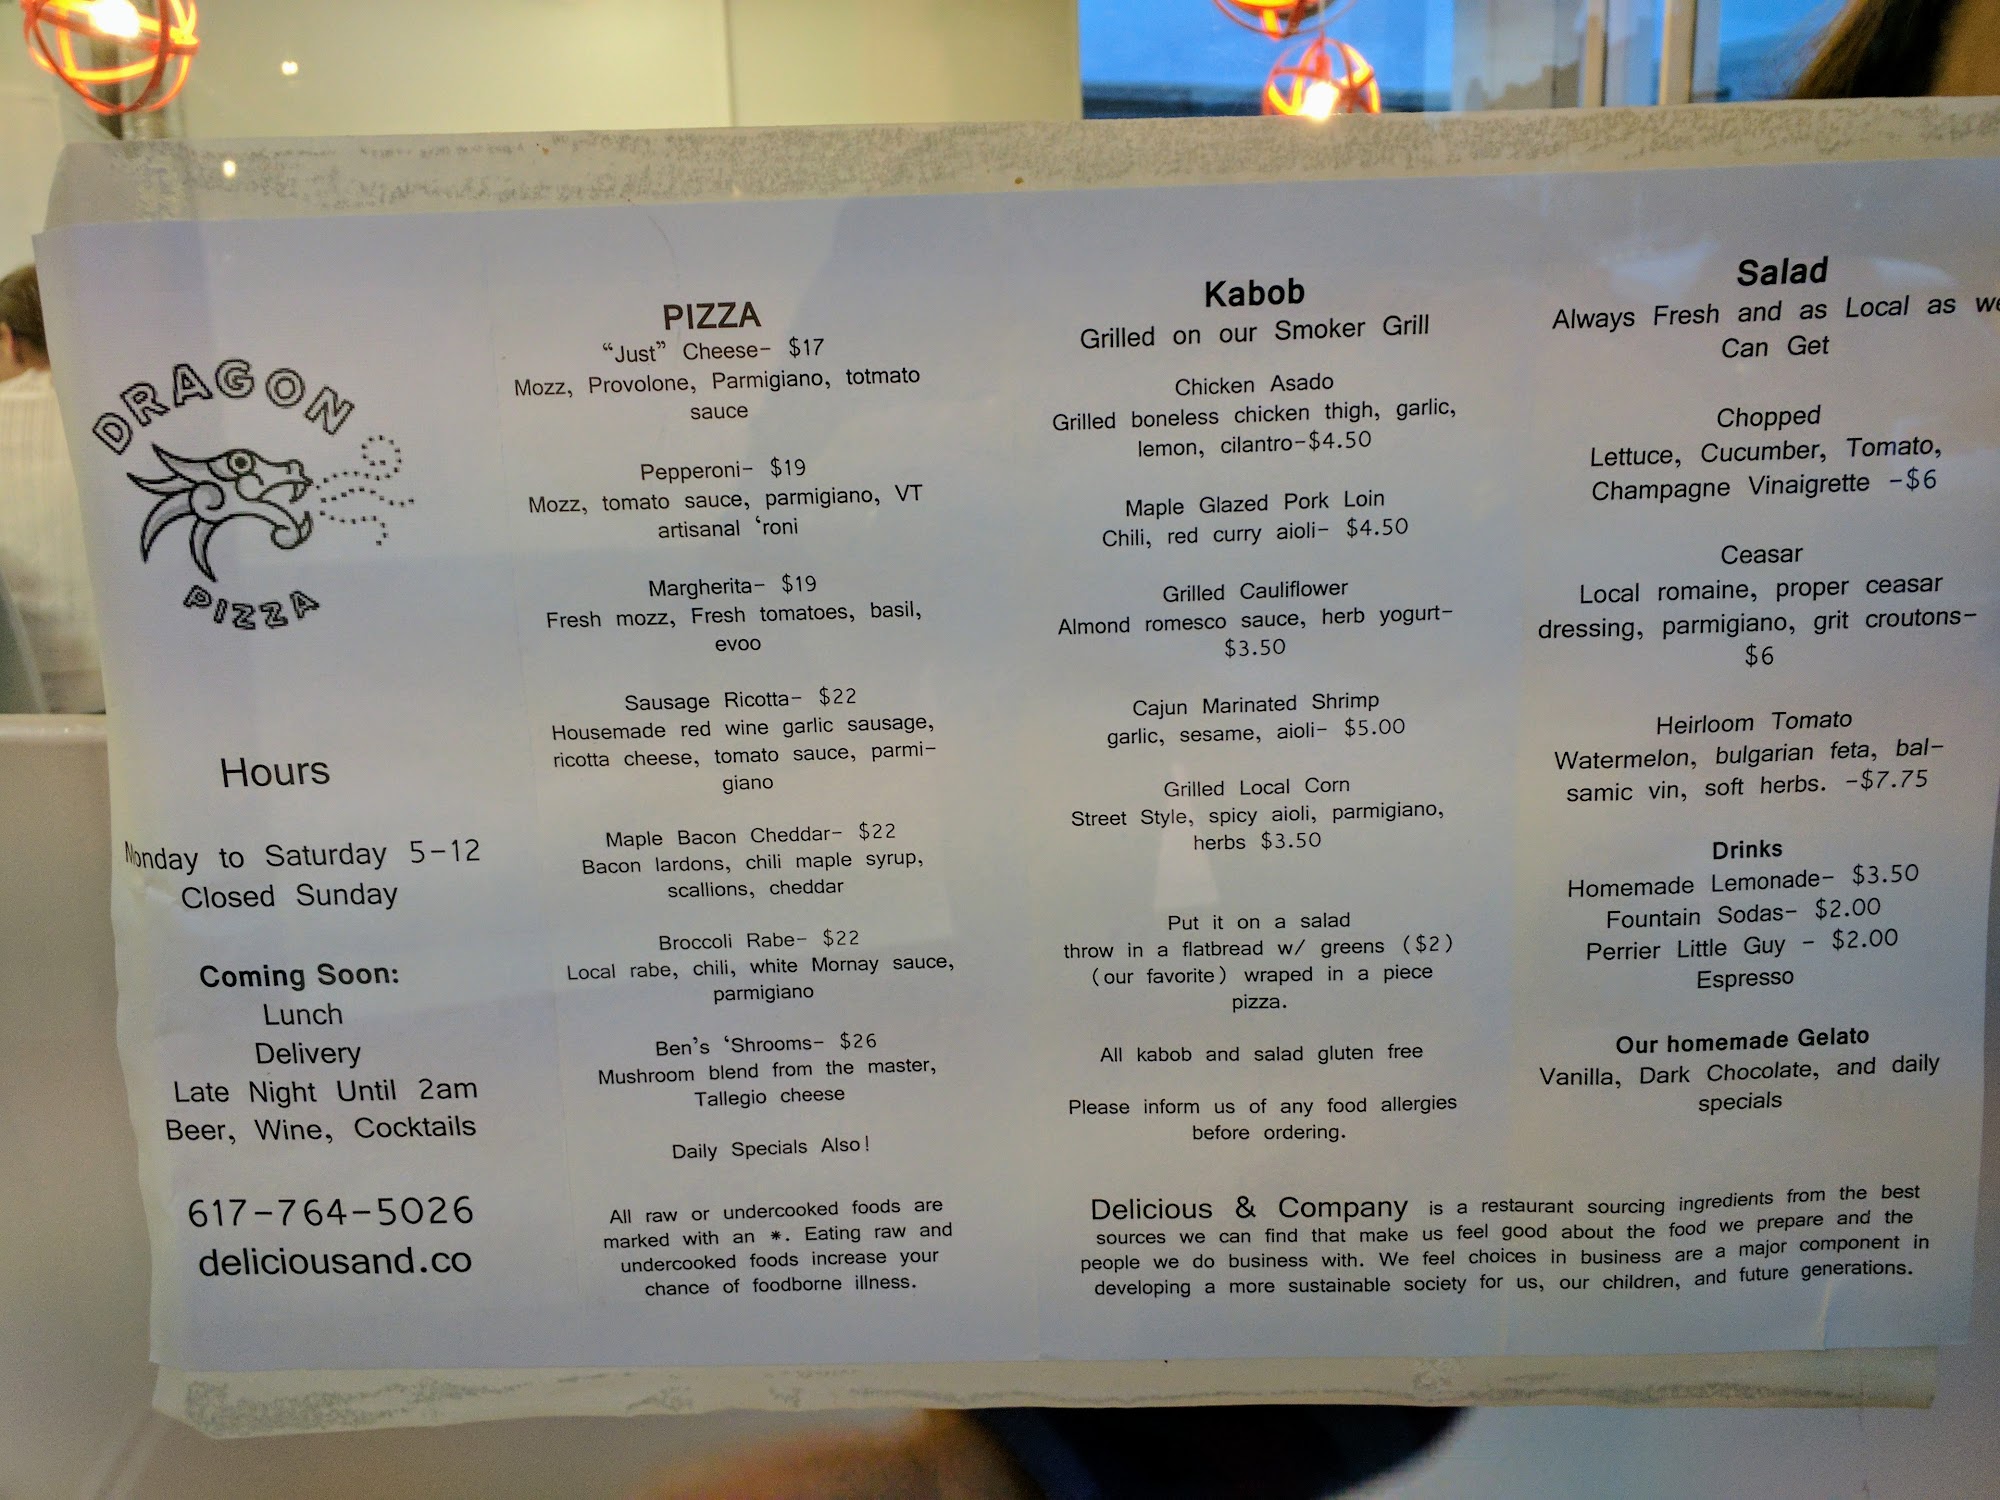 DRAGON
PIZZA
Hours
Monday to Saturday 5-12
Closed Sunday
Coming Soon:
Lunch
Delivery
Late Night Until 2am
Beer, Wine, Cocktails
617-764-5026
deliciousand.co
PIZZA
“Just” Cheese- $17
Mozz, Provolone, Parmigiano, totmato
sauce
Pepperoni- $19
Mozz, tomato sauce, parmigiano, VT
artisanal ‘roni
Margherita- $19
Fresh mozz, Fresh tomatoes, basil,
evoo
Sausage Ricotta- $22
Housemade red wine garlic sausage,
ricotta cheese, tomato sauce, parmi-
giano
Maple Bacon Cheddar- $22
Bacon lardons, chili maple syrup,
scallions, cheddar
Broccoli Rabe- $22
Local rabe, chili, white Mornay sauce,
parmigiano
Ben’s ‘Shrooms- $26
Mushroom blend from the master,
Tallegio cheese
Daily Specials Also!
All raw or undercooked foods are
marked with an *. Eating raw and
undercooked foods increase your
chance of foodborne illness.
Kabob
Grilled on our Smoker Grill
Chicken Asado
Grilled boneless chicken thigh, garlic,
lemon, cilantro-$4.50
Maple Glazed Pork Loin
Chili, red curry aioli- $4.50
Grilled Cauliflower
Almond romesco sauce, herb yogurt-
$3.50
Cajun Marinated Shrimp
garlic, sesame, aioli- $5.00
Grilled Local Corn
Street Style, spicy aioli, parmigiano,
herbs $3.50
Put it on a salad
throw in a flatbread w/ greens ($2)
(our favorite) wraped in a piece
pizza.
All kabob and salad gluten free
Please inform us of any food allergies
before ordering.
Salad
Always Fresh and as Local as we
Can Get
Chopped
Lettuce, Cucumber, Tomato,
Champagne Vinaigrette -$6
Ceasar
Local romaine, proper ceasar
dressing, parmigiano, grit croutons-
$6
Heirloom Tomato
Watermelon, bulgarian feta, bal-
samic vin, soft herbs. -$7.75
Drinks
Homemade Lemonade- $3.50
Fountain Sodas- $2.00
Perrier Little Guy - $2.00
Espresso
Our homemade Gelato
Vanilla, Dark Chocolate, and daily
specials
Delicious & Company is a restaurant sourcing ingredients from the best
sources we can find that make us feel good about the food we prepare and the
people we do business with. We feel choices in business are a major component in
developing a more sustainable society for us, our children, and future generations.